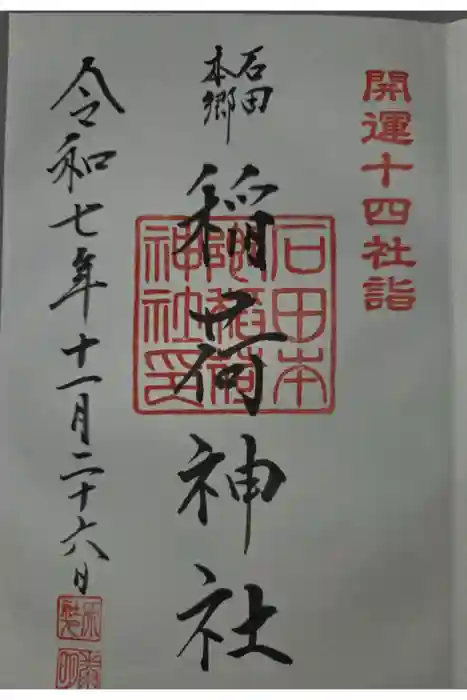 開運十四社詣
石田
本郷
稲荷神社
石田本
郷稲荷
神社印
令和七年十一月二十六日